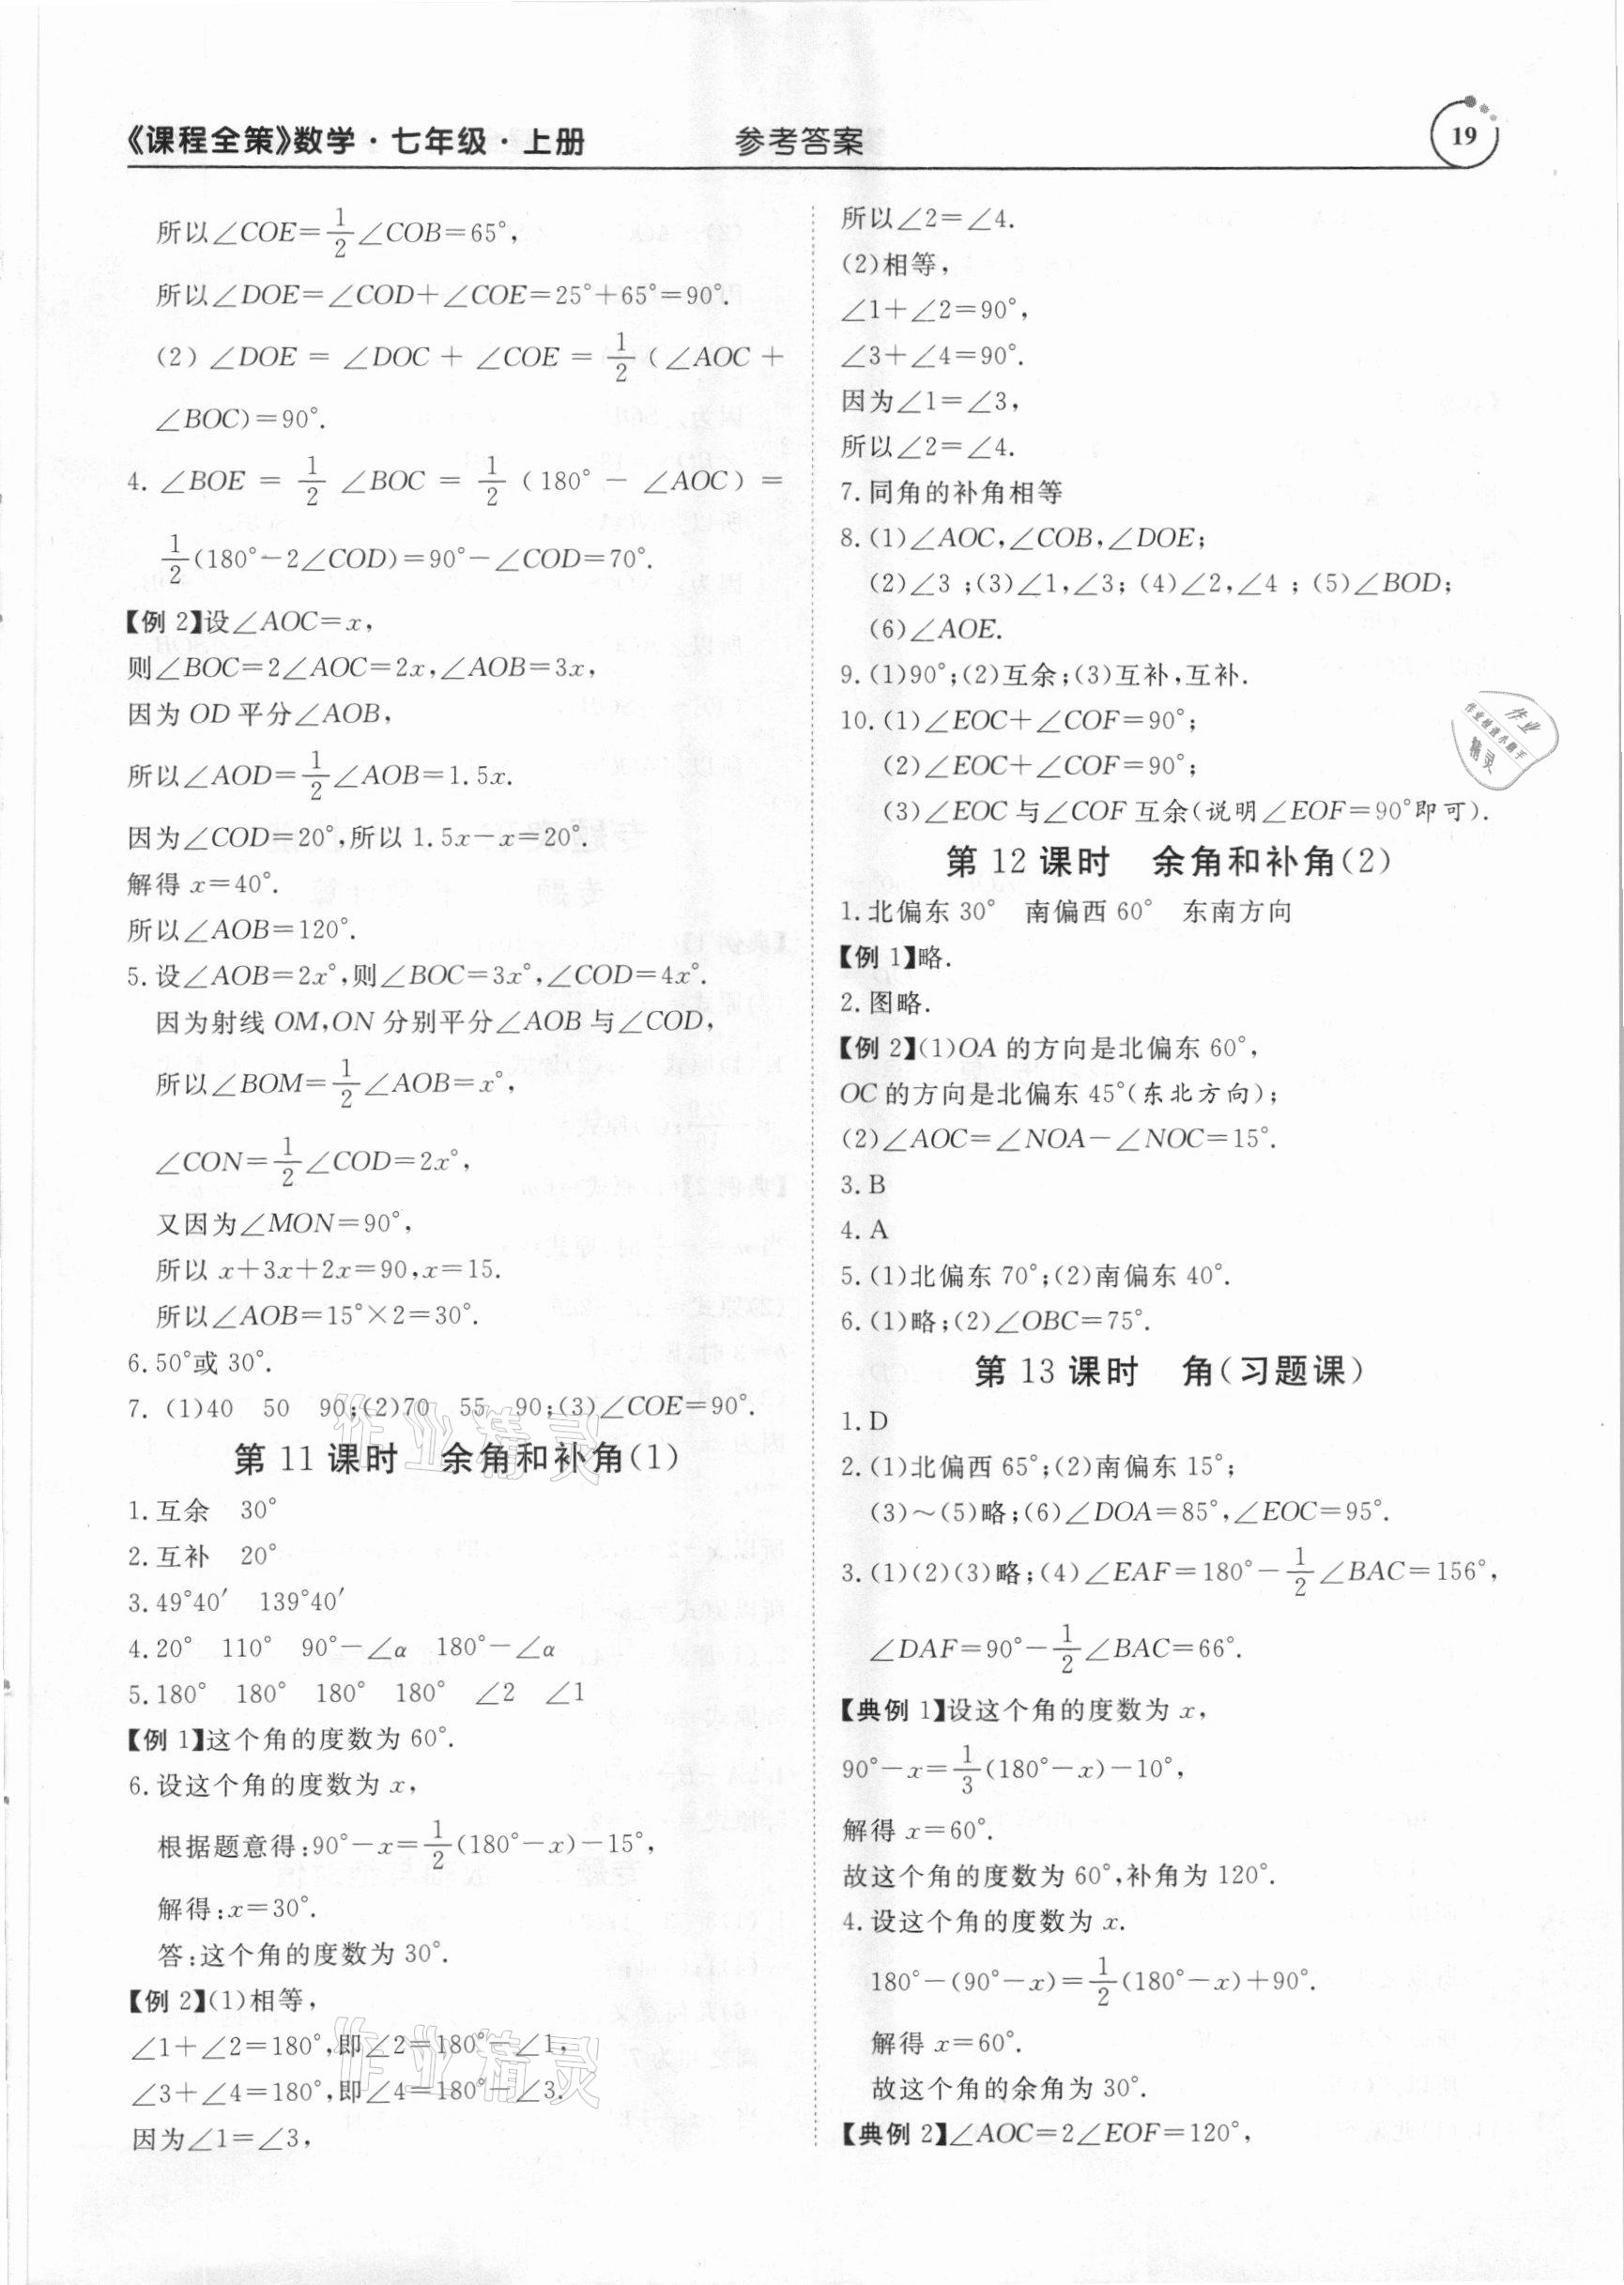 《课程全策》数学·七年级·上册 参考答案 19
所以∠COE=1/2∠COB=65°,
所以∠DOE=∠COD+∠COE=25°+65°=90°.
(2)∠DOE=∠DOC+∠COE=1/2(∠AOC+
∠BOC)=90°.
4. ∠BOE=1/2∠BOC=1/2(180°-∠AOC)=
1/2(180°-2∠COD)=90°-∠COD=70°.
【例2】设∠AOC=x,
则∠BOC=2∠AOC=2x,∠AOB=3x,
因为OD平分∠AOB,
所以∠AOD=1/2∠AOB=1.5x.
因为∠COD=20°,所以1.5x-x=20°.
解得x=40°.
所以∠AOB=120°.
5.设∠AOB=2x°,则∠BOC=3x°,∠COD=4x°.
因为射线OM,ON分别平分∠AOB与∠COD,
所以∠BOM=1/2∠AOB=x°,
∠CON=1/2∠COD=2x°,
又因为∠MON=90°,
所以x+3x+2x=90,x=15.
所以∠AOB=15°×2=30°.
6.50°或30°.
7. (1)40 50 90;(2)70 55 90;(3)∠COE=90°.
第11课时 余角和补角(1)
1.互余 30°
2.互补 20°
3.49°40′ 139°40′
4.20° 110° 90°-∠α 180°-∠α
5.180° 180° 180° 180° ∠2 ∠1
【例1】这个角的度数为60°.
6.设这个角的度数为x,
根据题意得:90°-x=1/2(180°-x)-15°,
解得:x=30°.
答:这个角的度数为30°.
【例2】(1)相等,
∠1+∠2=180°,即∠2=180°-∠1,
∠3+∠4=180°,即∠4=180°-∠3.
因为∠1=∠3,
所以∠2=∠4.
(2)相等,
∠1+∠2=90°,
∠3+∠4=90°.
因为∠1=∠3,
所以∠2=∠4.
7.同角的补角相等
8.(1)∠AOC,∠COB,∠DOE;
(2)∠3 ;(3)∠1,∠3; (4)∠2,∠4 ; (5)∠BOD;
(6)∠AOE.
9.(1)90°;(2)互余;(3)互补,互补.
10.(1)∠EOC+∠COF=90°;
(2)∠EOC+∠COF=90°;
(3)∠EOC与∠COF互余(说明∠EOF=90°即可).
第12课时 余角和补角(2)
1.北偏东30° 南偏西60° 东南方向
【例1】略.
2.图略.
【例2】(1)OA的方向是北偏东60°,
OC的方向是北偏东45°(东北方向);
(2)∠AOC=∠NOA-∠NOC=15°.
3.B
4.A
5.(1)北偏东70°;(2)南偏东40°.
6.(1)略;(2)∠OBC=75°.
第13课时 角(习题课)
1.D
2.(1)北偏西65°;(2)南偏东15°;
(3)~(5)略;(6)∠DOA=85°,∠EOC=95°.
3.(1)(2)(3)略;(4)∠EAF=180°-1/2∠BAC=156°,
∠DAF=90°-1/2∠BAC=66°.
【典例1】设这个角的度数为x,
90°-x=1/3(180°-x)-10°,
解得x=60°.
故这个角的度数为60°,补角为120°.
4.设这个角的度数为x.
180°-(90°-x)=1/2(180°-x)+90°.
解得x=60°.
故这个角的余角为30°.
【典例2】∠AOC=2∠EOF=120°,
作业
作业检查小助手
精灵
作业精灵
作业精灵